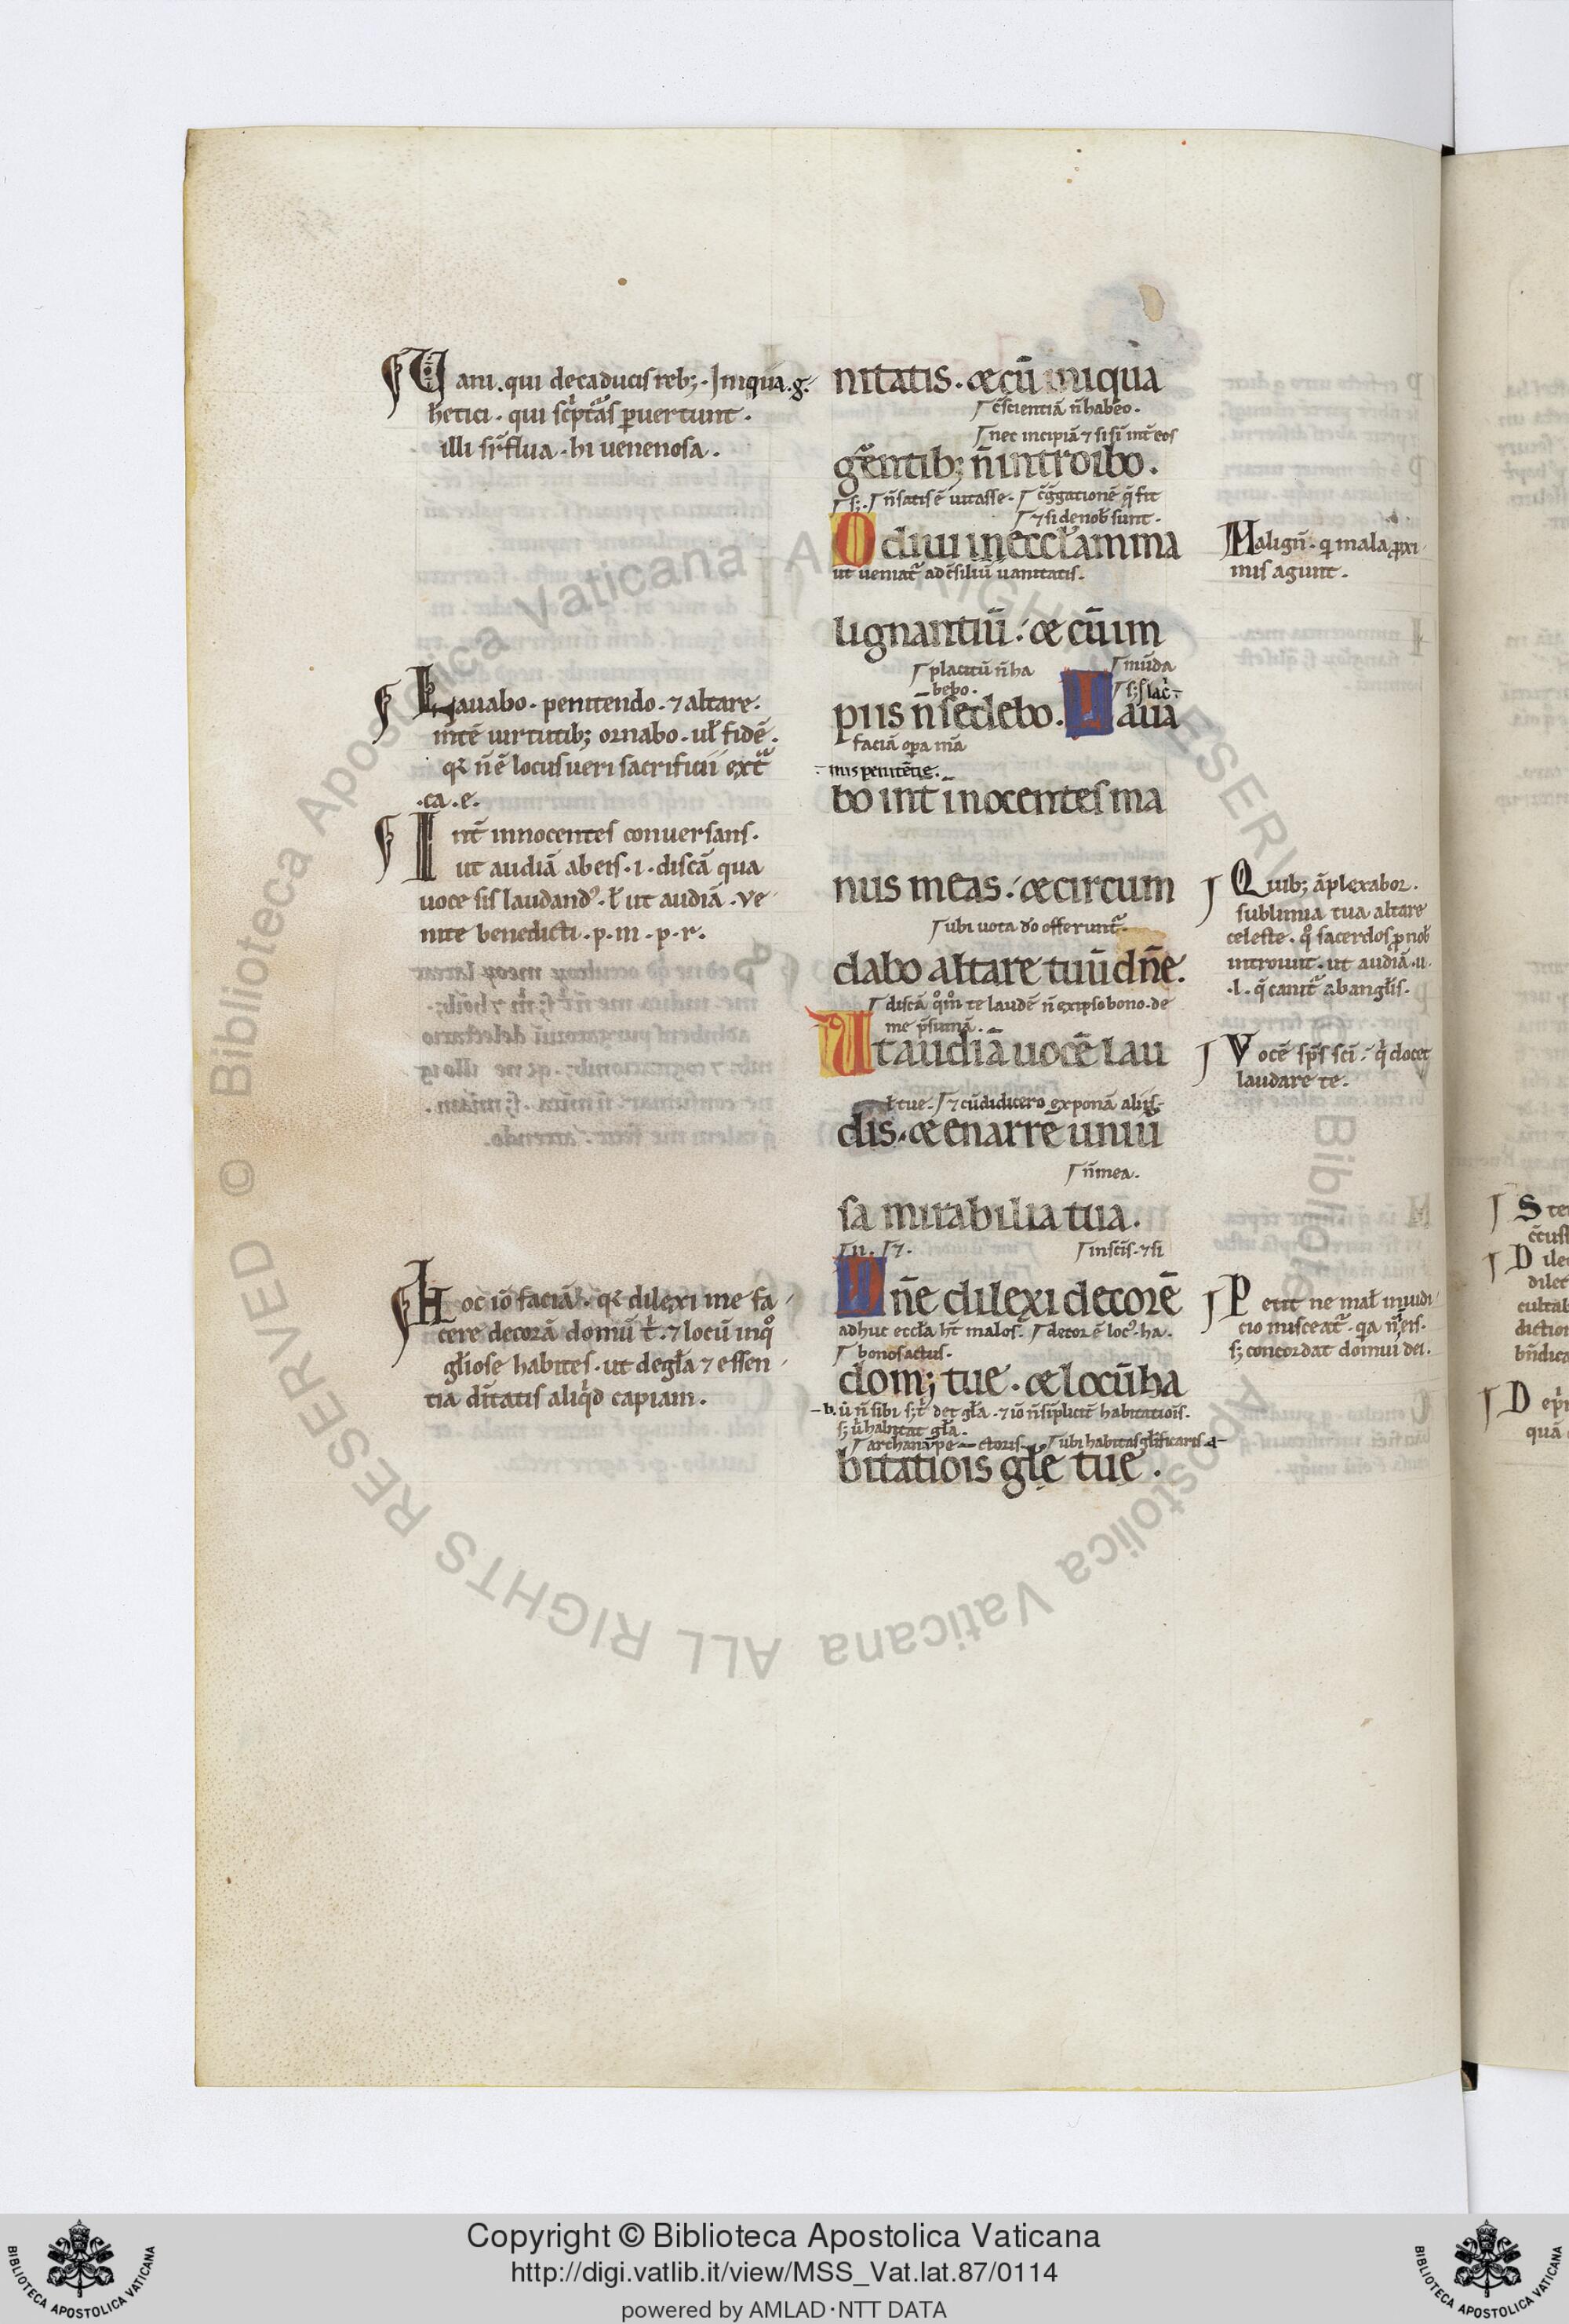 Uani . qui de caducis reb; . Iniqua . g .
hetici . qui sc̃ptãs puertunt .
illi suꝑflua . hi uenenosa .
Lauabo . penitendo . ⁊ altare .
mtẽ uirtutib; ornabo . ul̃ fidẽ .
qꝛ ñ ẽ locus ueri sacrificii ext̃
.ca .e.
Int̃ innocentes conuersans .
ut audiã ab eis . i . discã qua
uoce sis laudandꝰ . ł ut audiã . Ve
nite benedicti . p . m . p . r .
Hoc iõ faciã . qꝛ dilexi me fa
cere decorã domũ t̾ . ⁊ locũ in q̊
gl̃iose habites . ut de gl̃a ⁊ essen
tia diũtatis aliq̾d capiam .
nitatis . ⁊ cũ iniqua
c̃scientiã ñ habẽo .
nec incipiã ⁊ si sĩ int̃ eos
gẽntib; ñ introibo .
s; . ñ satis ẽ uitasse . c̃g̃gationẽ q̃ fit
⁊ si de nob̃ sunt .
Odiui in eccl̃am ma
ut ueniat̃ ad c̃siliũ uanitatis .
lignantiũ . ⁊ cũ im
placitũ ñ ha
bebo .
mũda
piis ñ sedebo . Laua
faciã oꝑa m̃a
nis penitẽtię .
bo int̃ ĩnocentes ma
nus meas . ⁊ circum
ubi uota d̃o offerunt̃ .
dabo altare tuũ dñe .
discã q̊m̊ te laudẽ ñ ex ipso bono . de
me p̃sumã .
Ut audiã uocẽ lau
ł tuę . ⁊ cũ didicero exponã aliis .
dis . ⁊ enarrẽ uniũ
ñ mea .
sa mirabilia tua .
Dñe dilexi decorẽ
adhuc eccl̃a ht̃ malos . decor ẽ locꝰ . ha .
bonos actus .
dom; tuę . ⁊ locũ ha
b . ũ ñ sibi s; t̾ det gl̃a . ⁊ iõ ñ sĩplicit̃ habitatiõis .
s; ũ habitat gl̃a .
ubi habitas gl̃ificaris
bitatiõis gl̃ę tuę .
Maligñ . q̾ mala ꝓxi
mis agunt .
Quib; ãplexabor .
sublimia tua altare
celeste . q̊ sacerdos ꝓ nob̃
introiuit . ut audiã . u .
.l . q̃ canit̃ ab angl̃is .
Vocẽ sp̃s sc̃i . q̾ docet
laudare te .
Petit ne mal̃ in iudi
cio misceat̃ . q̾a ñ eis .
s; concordat domui dei .
Biblioteca Apostolica Vaticana ALL RIGHTS RESERVED ©
Copyright © Biblioteca Apostolica Vaticana
http://digi.vatlib.it/view/MSS_Vat.lat.87/0114
powered by AMLAD·NTT DATA
BIBLIOTECA APOSTOLICA VATICANA
BIBLIOTECA APOSTOLICA VATICANA